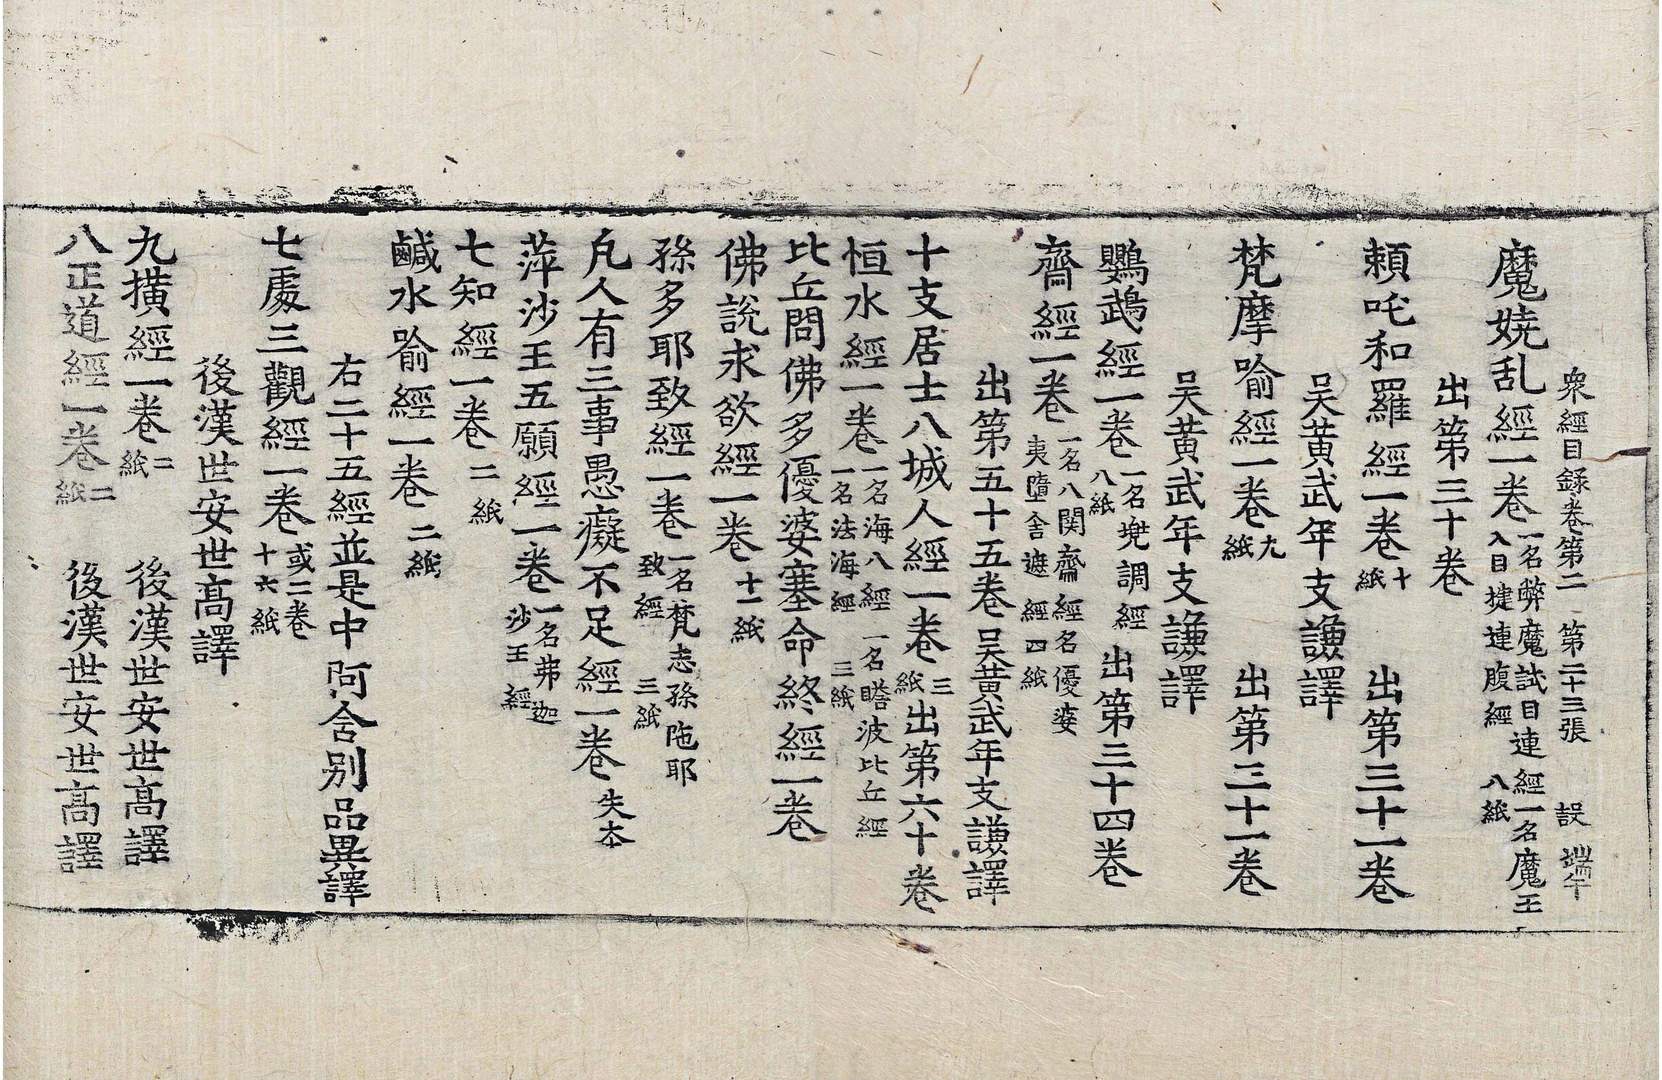 衆經目録卷第二　第二十三張　設　端午
魔嬈乱經一卷　一名弊魔試目連經一名魔王入目揵連腹經　八紙
出第三十卷
頼吒和羅經一卷　十紙　出第三十一卷
吴黄武年支謙譯
梵摩喻經一卷　九紙　出第三十一卷
吴黄武年支謙譯
鸚鵡經一卷　一名兠調經　八紙　出第三十四卷
齋經一卷　一名八関齋經名優婆夷墮舍遮經　四紙
出第五十五卷　吴黄武年支謙譯
十支居士八城人經一卷　三紙　出第六十卷
恒水經一卷　一名海八經　一名瞻波比丘經　一名法海經　三紙
比丘問佛多優婆塞命終經一卷
佛說求欲經一卷　十一紙
孫多耶致經一卷　一名梵志孫陁耶致經　三紙
凡人有三事愚癡不足經一卷　失本
蓱沙王五願經一卷　一名弗迦沙王經
七知經一卷　二紙
鹹水喻經一卷　二紙
右二十五經並是中阿含别品異譯
七處三觀經一卷　或二卷　十六紙
後漢世安世髙譯
九横經一卷　二紙　後漢世安世髙譯
八正道經一卷　二紙　後漢世安世髙譯